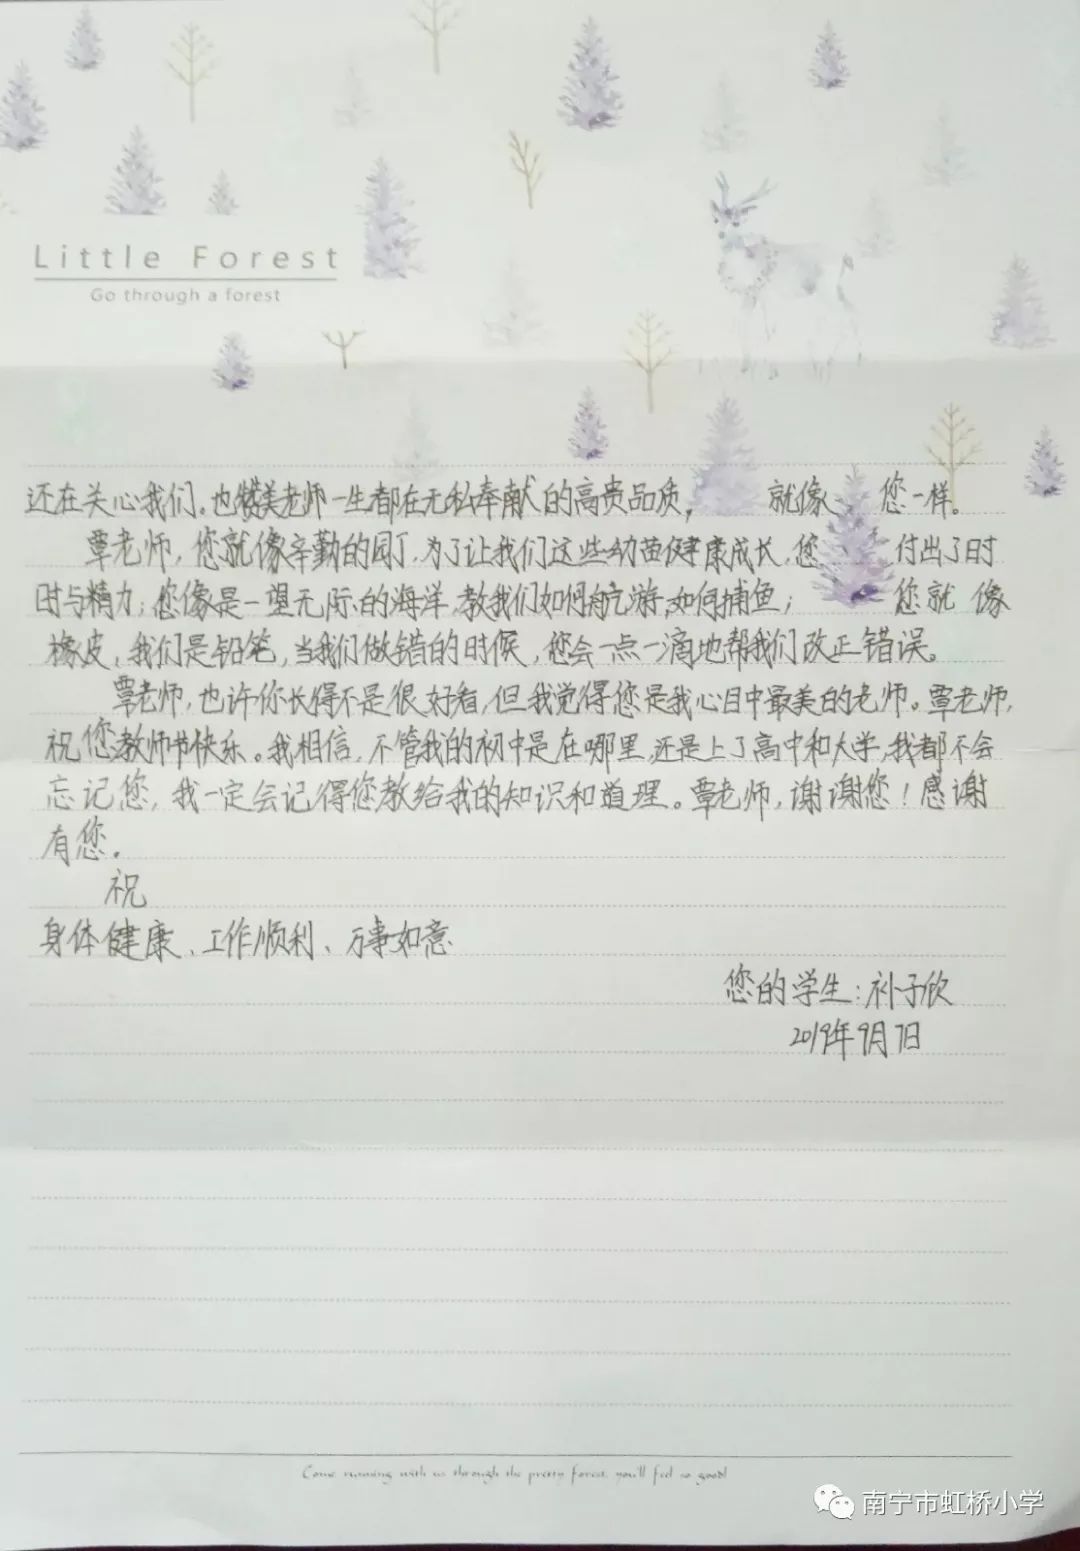 Little Forest
Go through a forest
还在关心我们。也赞美老师一生都在无私奉献的高贵品质，就像您一样。
覃老师，您就像辛勤的园丁，为了让我们这些幼苗健康成长，您付出了时
时与精力；您像是一望无际的海洋，教我们如何航游，如何捕鱼；您就像
橡皮，我们是铅笔，当我们做错的时候，您会一点一滴地帮我们改正错误。
覃老师，也许你长得不是很好看，但我觉得您是我心目中最美的老师。覃老师，
祝您教师节快乐。我相信，不管我的初中是在哪里，还是上了高中和大学，我都不会
忘记您，我一定会记得您教给我的知识和道理。覃老师，谢谢您！感谢
有您。
祝
身体健康、工作顺利、万事如意
您的学生：补子欣
2019年9月7日
Come running with us through the pretty forest, you'll feel so good!
南宁市虹桥小学